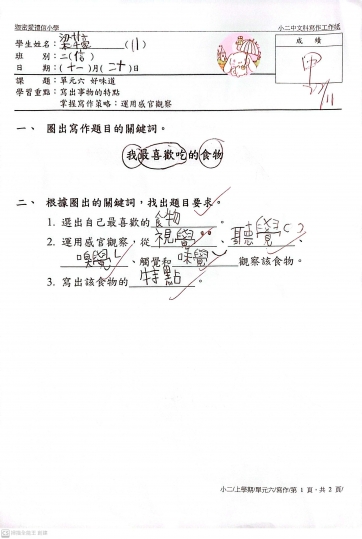 聖愛德禮信小學 小二中文科寫作工作紙
學生姓名：梁 (11) 成績
班 別：二(信) 甲
日 期：(十一)月(二十)日
課 題：單元六 好味道
學習重點：寫出事物的特點
掌握寫作策略：運用感官觀察
一、 圈出寫作題目的關鍵詞。
我最喜歡吃的食物
二、 根據圈出的關鍵詞，找出題目要求。
1. 選出自己最喜歡的食物。
2. 運用感官觀察，從視覺、聽覺、
嗅覺、觸覺和味覺觀察該食物。
3. 寫出該食物的特點。
小二/上學期/單元六/寫作/第 1 頁，共 2 頁/